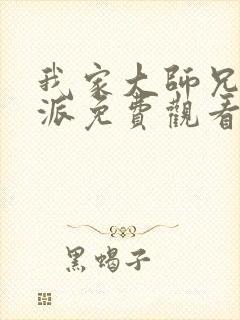 我家大師兄
派免費觀看
黑蝎子